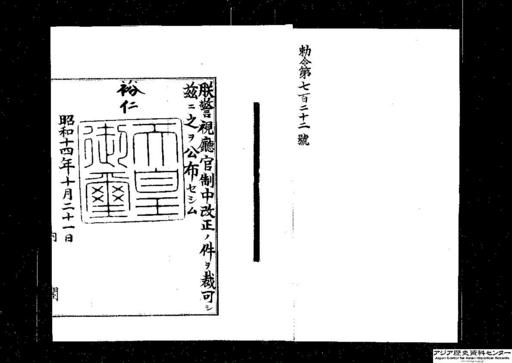 勅令第七百二十二號
朕警視廳官制中改正ノ件ヲ裁可シ
茲ニ之ヲ公布セシム
裕仁
天皇
御璽
昭和十四年十月二十一日
内閣
アジア歴史資料センター
Japan Center for Asian Historical Records